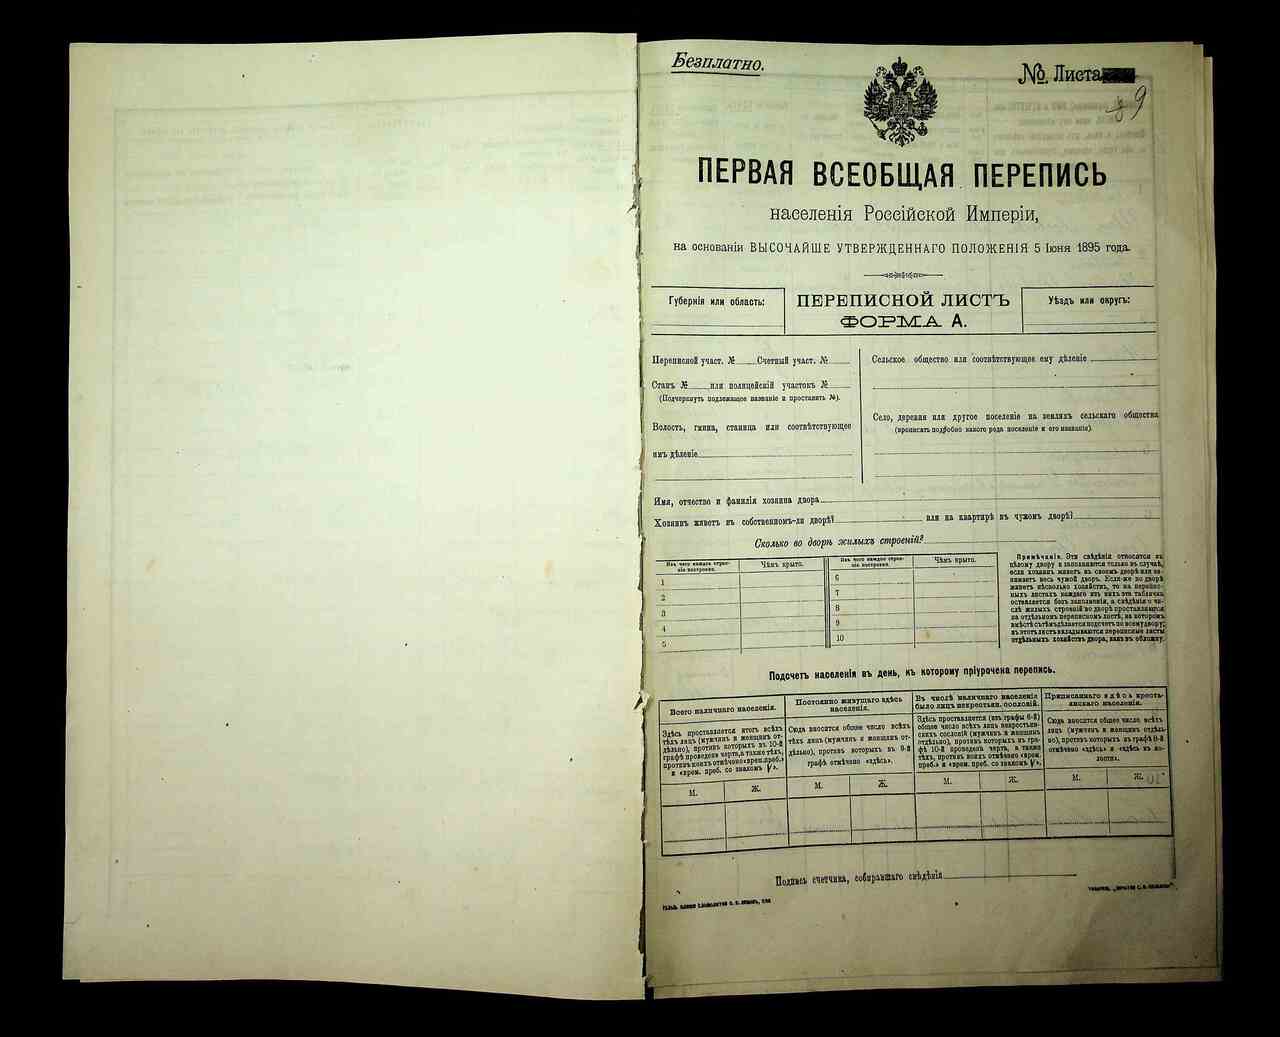 Безплатно.
№ Листа
9
ПЕРВАЯ ВСЕОБЩАЯ ПЕРЕПИСЬ
населенія Россійской Имперіи,
на основаніи ВЫСОЧАЙШЕ УТВЕРЖДЕННАГО ПОЛОЖЕНІЯ 5 Іюня 1895 года.
Губернія или область:
ПЕРЕПИСНОЙ ЛИСТЪ
ФОРМА А.
Уѣздъ или округъ:
Переписной участ. № Счетный участ. №
Станъ № или полицейскій участокъ №
(Подчеркнуть подлежащее названіе и проставить №).
Волость, гмина, станица или соотвѣтствующее
имъ дѣленіе
Сельское общество или соотвѣтствующее ему дѣленіе
Село, деревня или другое поселеніе на земляхъ сельскаго общества
(прописать подробно какого рода поселеніе и его названіе).
Имя, отчество и фамилія хозяина двора
Хозяинъ живетъ въ собственномъ-ли дворѣ? или на квартирѣ въ чужомъ дворѣ?
Сколько во дворѣ жилыхъ строеній?
Изъ чего каждое строе-
ніе построено.
Чѣмъ крыто.
Изъ чего каждое строе-
ніе построено.
Чѣмъ крыто.
1
2
3
4
5
6
7
8
9
10
Примѣчаніе. Эти свѣдѣнія относятся къ
цѣлому двору и заполняются только въ случаѣ,
если хозяинъ живетъ въ своемъ дворѣ или за-
нимаетъ весь чужой дворъ. Если-же во дворѣ
живетъ нѣсколько хозяйствъ, то на перепис-
ныхъ листахъ каждаго изъ нихъ эта табличка
оставляется безъ заполненія, а свѣдѣнія о чи-
слѣ жилыхъ строеній во дворѣ проставляются
на отдѣльномъ переписномъ листѣ, на которомъ
вмѣстѣ съ тѣмъ дѣлается подсчетъ по всему двору;
въ этотъ листъ вкладываются переписные листы
отдѣльныхъ хозяйствъ двора, какъ въ обложку.
Подсчетъ населенія въ день, къ которому пріурочена перепись.
Всего наличнаго населенія.
Постоянно живущаго здѣсь
населенія.
Въ числѣ наличнаго населенія
было лицъ некрестьян. сословій.
Приписаннаго здѣсь кресть-
янскаго населенія.
Здѣсь проставляется итогъ всѣхъ
тѣхъ лицъ (мужчинъ и женщинъ от-
дѣльно), противъ которыхъ въ 10-й
графѣ проведена черта, а также тѣхъ,
противъ коихъ отмѣчено «врем. преб.»
и «врем. преб. со знакомъ V».
Сюда вносится общее число всѣхъ
тѣхъ лицъ (мужчинъ и женщинъ от-
дѣльно), противъ которыхъ въ 9-й
графѣ отмѣчено «здѣсь».
Здѣсь проставляется (изъ графы 6-й)
общее число всѣхъ лицъ некрестьян-
скихъ сословій (мужчинъ и женщинъ
отдѣльно), противъ которыхъ въ гра-
фѣ 10-й проведена черта, а также
тѣхъ, противъ коихъ отмѣчено «врем.
преб.» и «врем. преб. со знакомъ V».
Сюда вносится общее число всѣхъ
лицъ (мужчинъ и женщинъ отдѣль-
но), противъ которыхъ въ графѣ 8-й
отмѣчено «здѣсь» и «здѣсь въ во-
лости».
М. Ж. М. Ж. М. Ж. М. Ж.
Подпись счетчика, собиравшаго свѣдѣнія